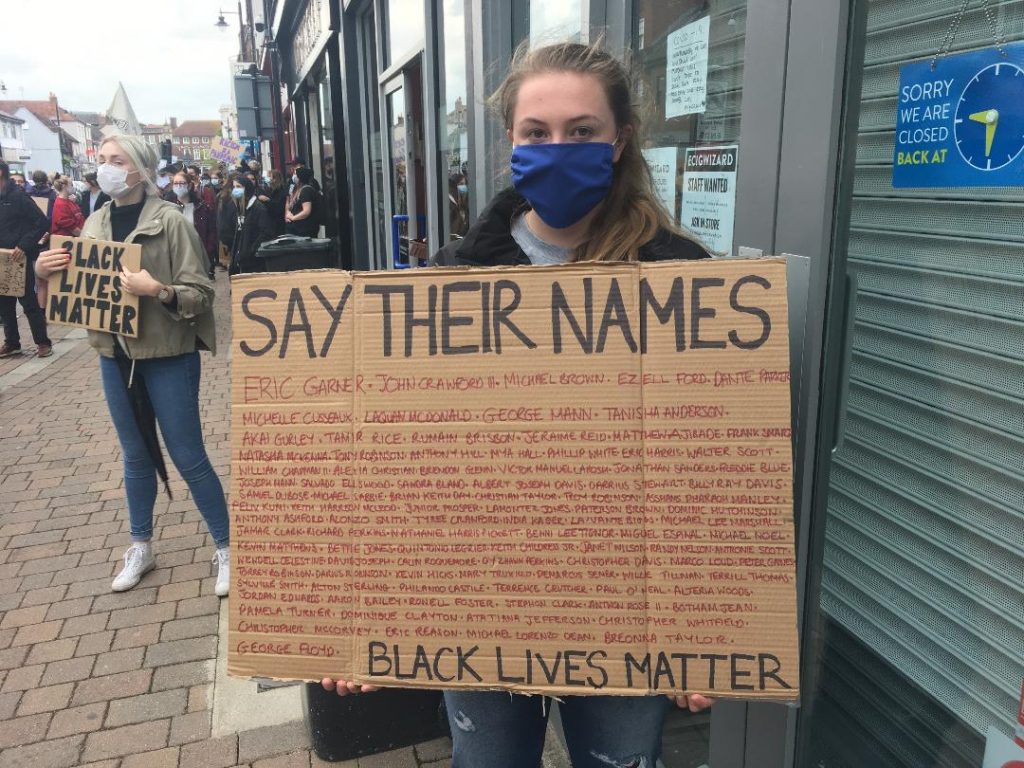 SAY THEIR NAMES
ERIC GARNER · JOHN CRAWFORD III · MICHAEL BROWN · EZELL FORD · DANTE PARKER
MICHELLE CUSSEAUX · LAQUAN MCDONALD · GEORGE MANN · TANISHA ANDERSON ·
AKAI GURLEY · TAMIR RICE · RUMAIN BRISBON · JERAME REID · MATTHEW AJIBADE · FRANK
NATASHA MCKENNA · TONY ROBINSON · ANTHONY HILL · MYA HALL · PHILLIP WHITE · ERIC HARRIS · WALTER SCOTT ·
WILLIAM CHAPMAN II · ALEXIA CHRISTIAN · BRENDON GLENN · VICTOR MANUEL LAROSA · JONATHAN SANDERS · FREDDIE BLUE ·
JOSEPH MANN · SALVADO ELLSWOOD · SANDRA BLAND · ALBERT JOSEPH DAVIS · DARRIUS STEWART · BILLY RAY DAVIS ·
SAMUEL DUBOSE · MICHAEL SABBIE · BRIAN KEITH DAY · CHRISTIAN TAYLOR · TROY ROBINSON · ASSHAMS PHARAOH MANLEY ·
FELIX KUMI · KEITH HARRISON MCLEOD · JUNIOR PROSPER · LAMONTEZ JONES · PATERSON BROWN · DOMINIC HUTCHINSON ·
ANTHONY ASHFORD · ALONZO SMITH · TYREE CRAWFORD · INDIA KAGER · LA'VANTE BIGGS · MICHAEL LEE MARSHALL ·
JAMAR CLARK · RICHARD PERKINS · NATHANIEL HARRIS PICKETT · BENNI LEE TIGNOR · MIGUEL ESPINAL · MICHAEL NOEL ·
KEVIN MATTHEWS · BETTIE JONES · QUINTONIO LEGRIER · KEITH CHILDRESS JR · JANET WILSON · RANDY NELSON · ANTRONIE SCOTT ·
WENDELL CELESTINE · DAVID JOSEPH · CALIN ROQUEMORE · DYZHAWN PERKINS · CHRISTOPHER DAVIS · MARCO LOUD · PETER GAINES ·
TORREY ROBINSON · DARIUS ROBINSON · KEVIN HICKS · MARY TRUXILLO · DEMARCUS SEMER · WILLIE TILLMAN · TERRILL THOMAS ·
SYLVILLE SMITH · ALTON STERLING · PHILANDO CASTILE · TERRENCE CRUTCHER · PAUL O'NEAL · ALTERIA WOODS ·
JORDAN EDWARDS · AARON BAILEY · RONELL FOSTER · STEPHON CLARK · ANTWON ROSE II · BOTHAM JEAN ·
PAMELA TURNER · DOMINIQUE CLAYTON · ATATIANA JEFFERSON · CHRISTOPHER WHITFIELD ·
CHRISTOPHER MCCORVEY · ERIC REASON · MICHAEL LORENZO DEAN · BREONNA TAYLOR ·
GEORGE FLOYD ·
BLACK LIVES MATTER
BLACK
LIVES
MATTER
ECIGWIZARD
STAFF WANTED
ASK IN STORE
SORRY
WE ARE
CLOSED
BACK AT